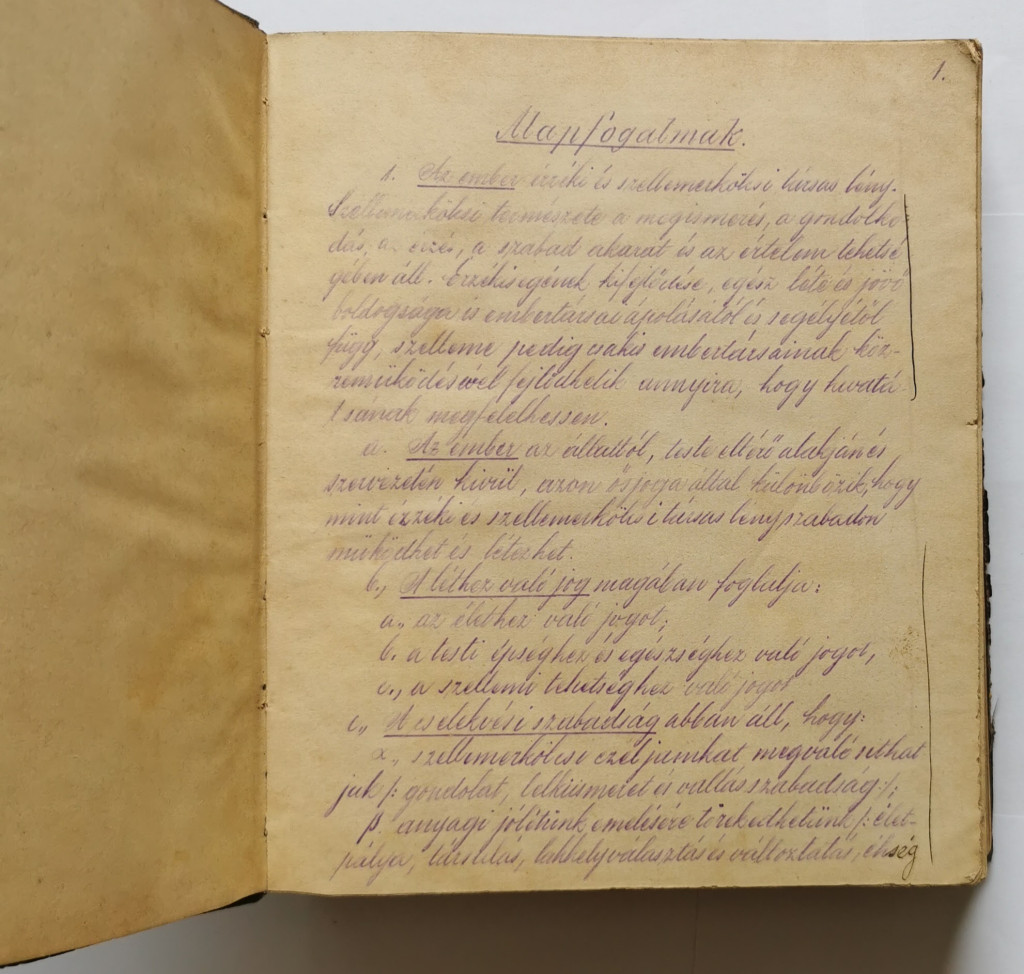 1.
Alapfogalmak.
1. Az ember érzéki és szellemerkölcsi társas lény.
Szellemerkölcsi természete a megismerés, a gondolko-
dás, az érzés, a szabad akarat és az értelem tehetsé
gében áll. Érzékiségének kifejlődése, egész léte és jövő
boldogsága is embertársai ápolásától és segélyétől
függ, szelleme pedig csakis embertársainak köz-
reműködésével fejlődhetik annyira, hogy hivatá-
sának megfelelhessen.
a. Az ember az állattól, teste eltérő alakján és
szervezetén kivül, azon ősjoga által különbözik, hogy
mint érzéki és szellemerkölcsi társas lény szabadon
működhet és létezhet.
b., A léthez való jog magában foglalja:
a., az élethez való jogot;
b. a testi épséghez és egészséghez való jogot,
c., a szellemi tehetséghez való jogot
c., A cselekvési szabadság abban áll, hogy:
α., szellemerkölcsi czéljainkat megvalósithat
juk /: gondolat, lelkiismeret és vallásszabadság :/;
β. anyagi jólétünk emelésére törekedhetünk /: élet-
pálya, társulás, lakhelyválasztás és változtatás,